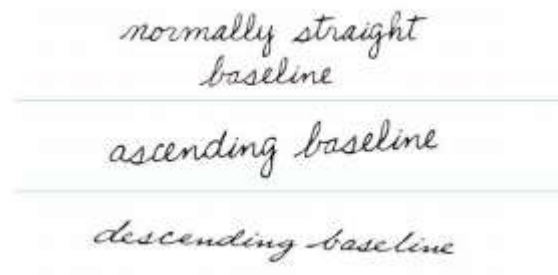 normally straight
baseline
ascending baseline
descending baseline